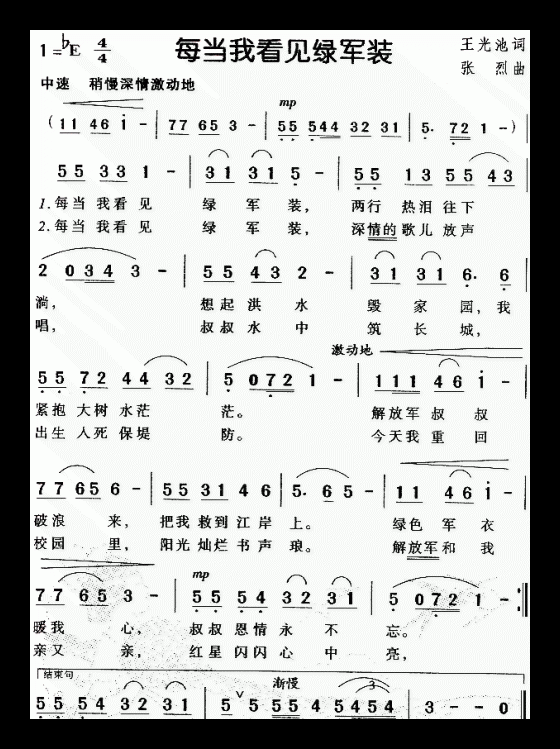 1=♭E 4/4 每当我看见绿军装 王光池词
张 烈曲
中速 稍慢深情激动地
mp
(11 46 i - | 77 65 3 - | 55 544 32 31 | 5. 72 1 -)|
55 33 1 - | 31 31 5 - | 55 13 55 43
1.每当 我看 见 绿 军 装, 两行 热泪 往下
2.每当 我看 见 绿 军 装, 深情的 歌儿 放声
2 034 3 - | 55 43 2 - | 31 31 6. 6
淌, 想起 洪 水 毁 家 园,我
唱, 叔叔 水 中 筑 长 城,
激动地
55 72 44 32 | 5 072 1 - | 111 11 46 i -
紧抱 大树 水茫 茫。 解放军 叔 叔
出生 入死 保堤 防。 今天我 重 回
77 65 6 - | 55 31 4 6 | 5. 6 5 - | 11 46 i -
破浪 来, 把我 救到 江岸 上。 绿色 军 衣
校园 里, 阳光 灿烂 书声 琅。 解放军和 我
mp
77 65 3 - | 55 54 32 31 | 5 072 1 - :|
暖我 心, 叔叔 恩情 永 不 忘。
亲又 亲, 红星 闪闪 心 中 亮,
结束句
渐慢
55 54 32 31 | 55 5 54 54 | 3 - - 0 |